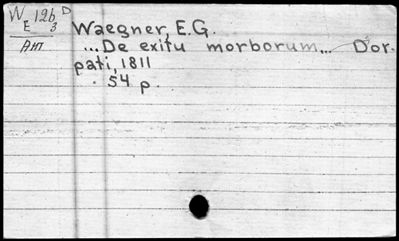 W 126 D
E 3
Дит
Waegner, E.G.
...De exitu morborum... Dor-
pati, 1811
54 p.